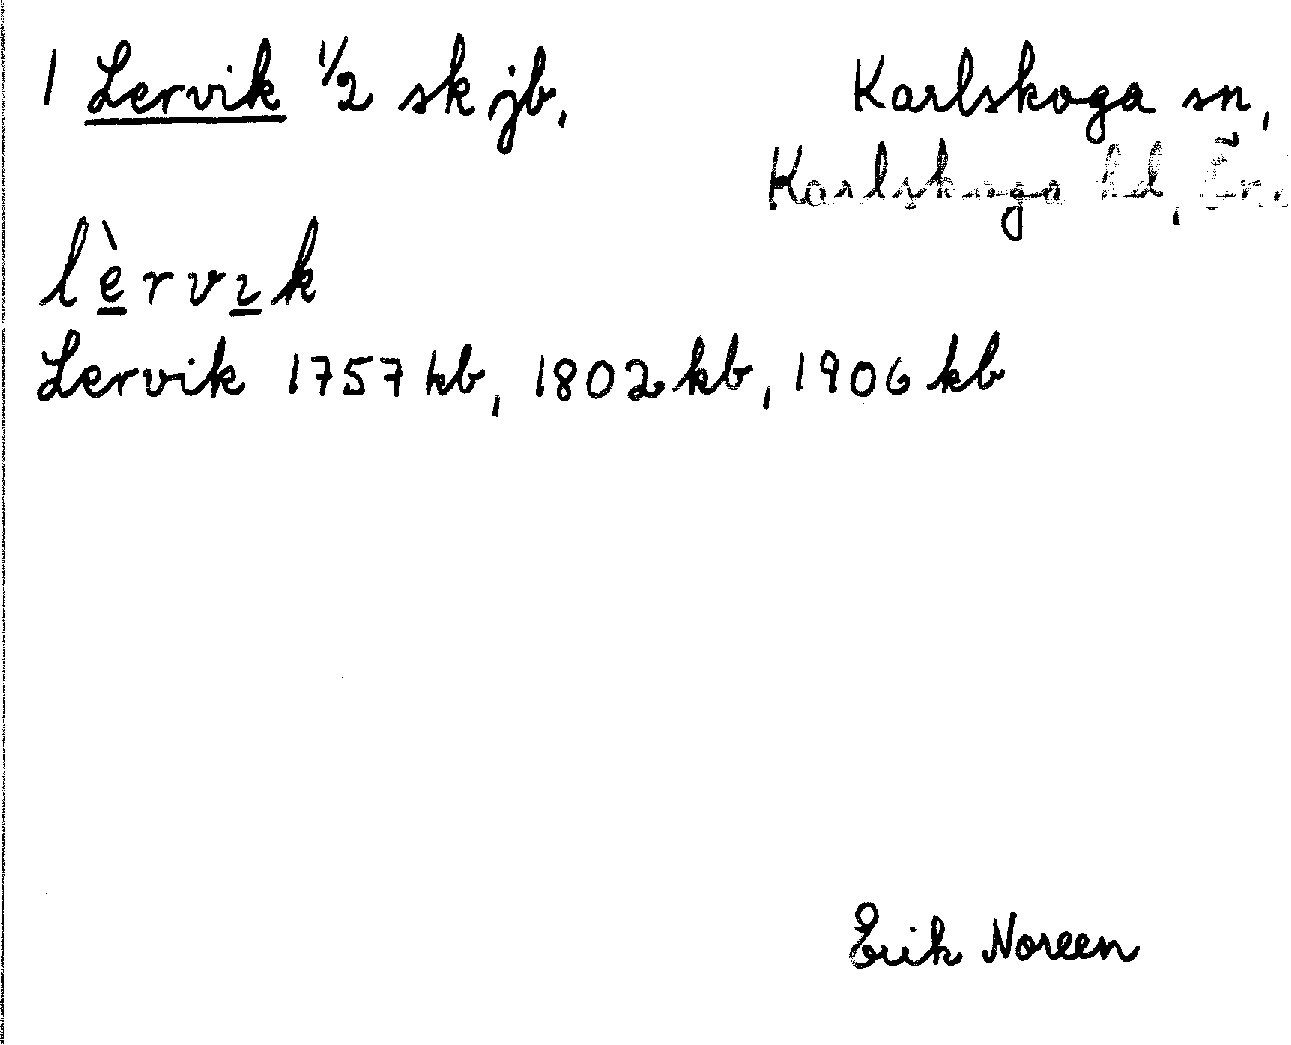 1 Lervik 1/2 sk jb.
Karlskoga sn,
Karlskoga hd, Ör.
lèrvık
Lervik 1757 kb, 1802 kb, 1906 kb
Erik Noreen